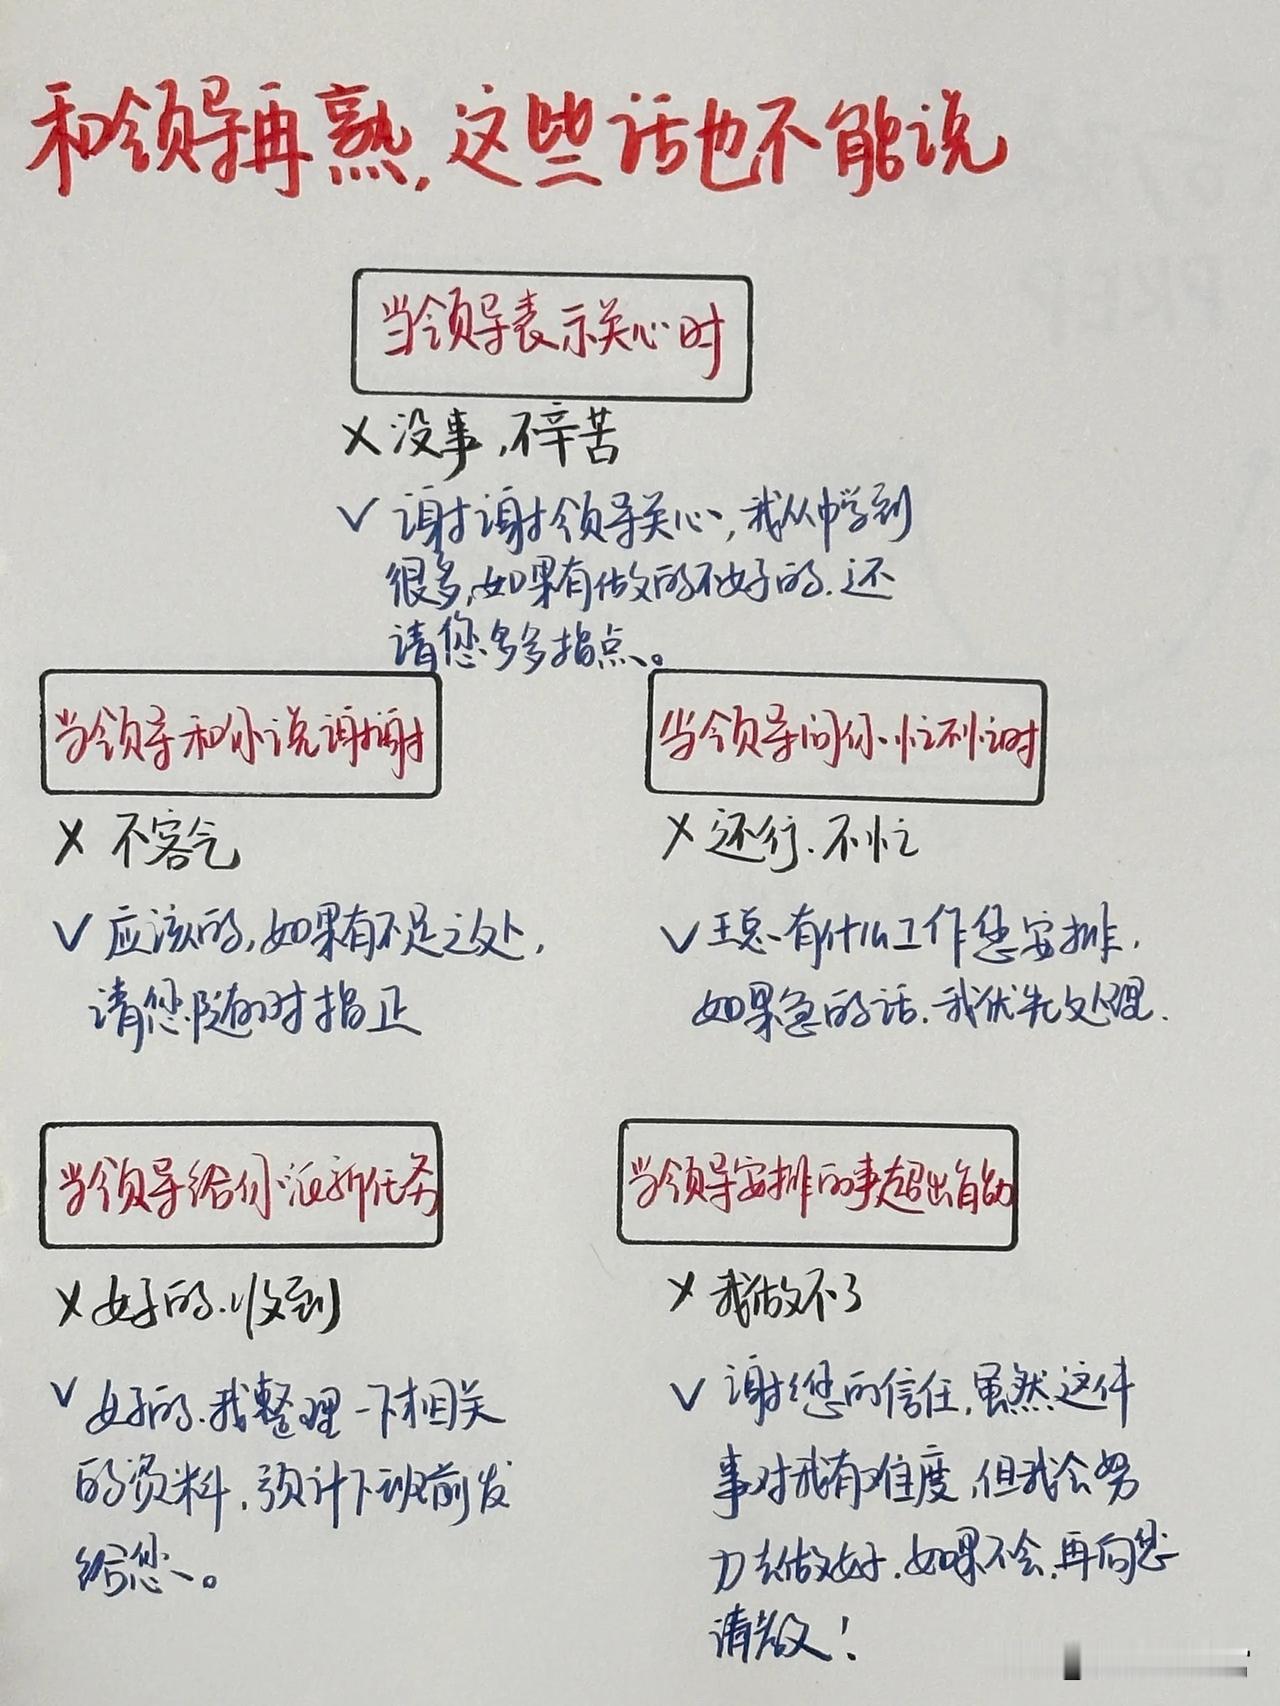 和领导再熟,这些话也不能说
当领导表示关心时
X 没事,不辛苦
✓ 谢谢领导关心,我从中学到
很多,如果有做的不好的.还
请您多多指点。
当领导和你说谢谢
X 不客气
✓ 应该的,如果有不足之处,
请您随时指正
当领导问你忙不忙时
X 还行.不忙
✓ 王总有什么工作您安排,
如果急的话.我优先处理.
当领导给你派新任务
X 好的.收到
✓ 好的.我整理一下相关
的资料,预计下班前发
给您。
当领导安排的事超出自己能力
X 我做不了
✓ 谢谢您的信任,虽然这件
事对我有难度,但我会努
力去做好.如果不会.再向您
请教!